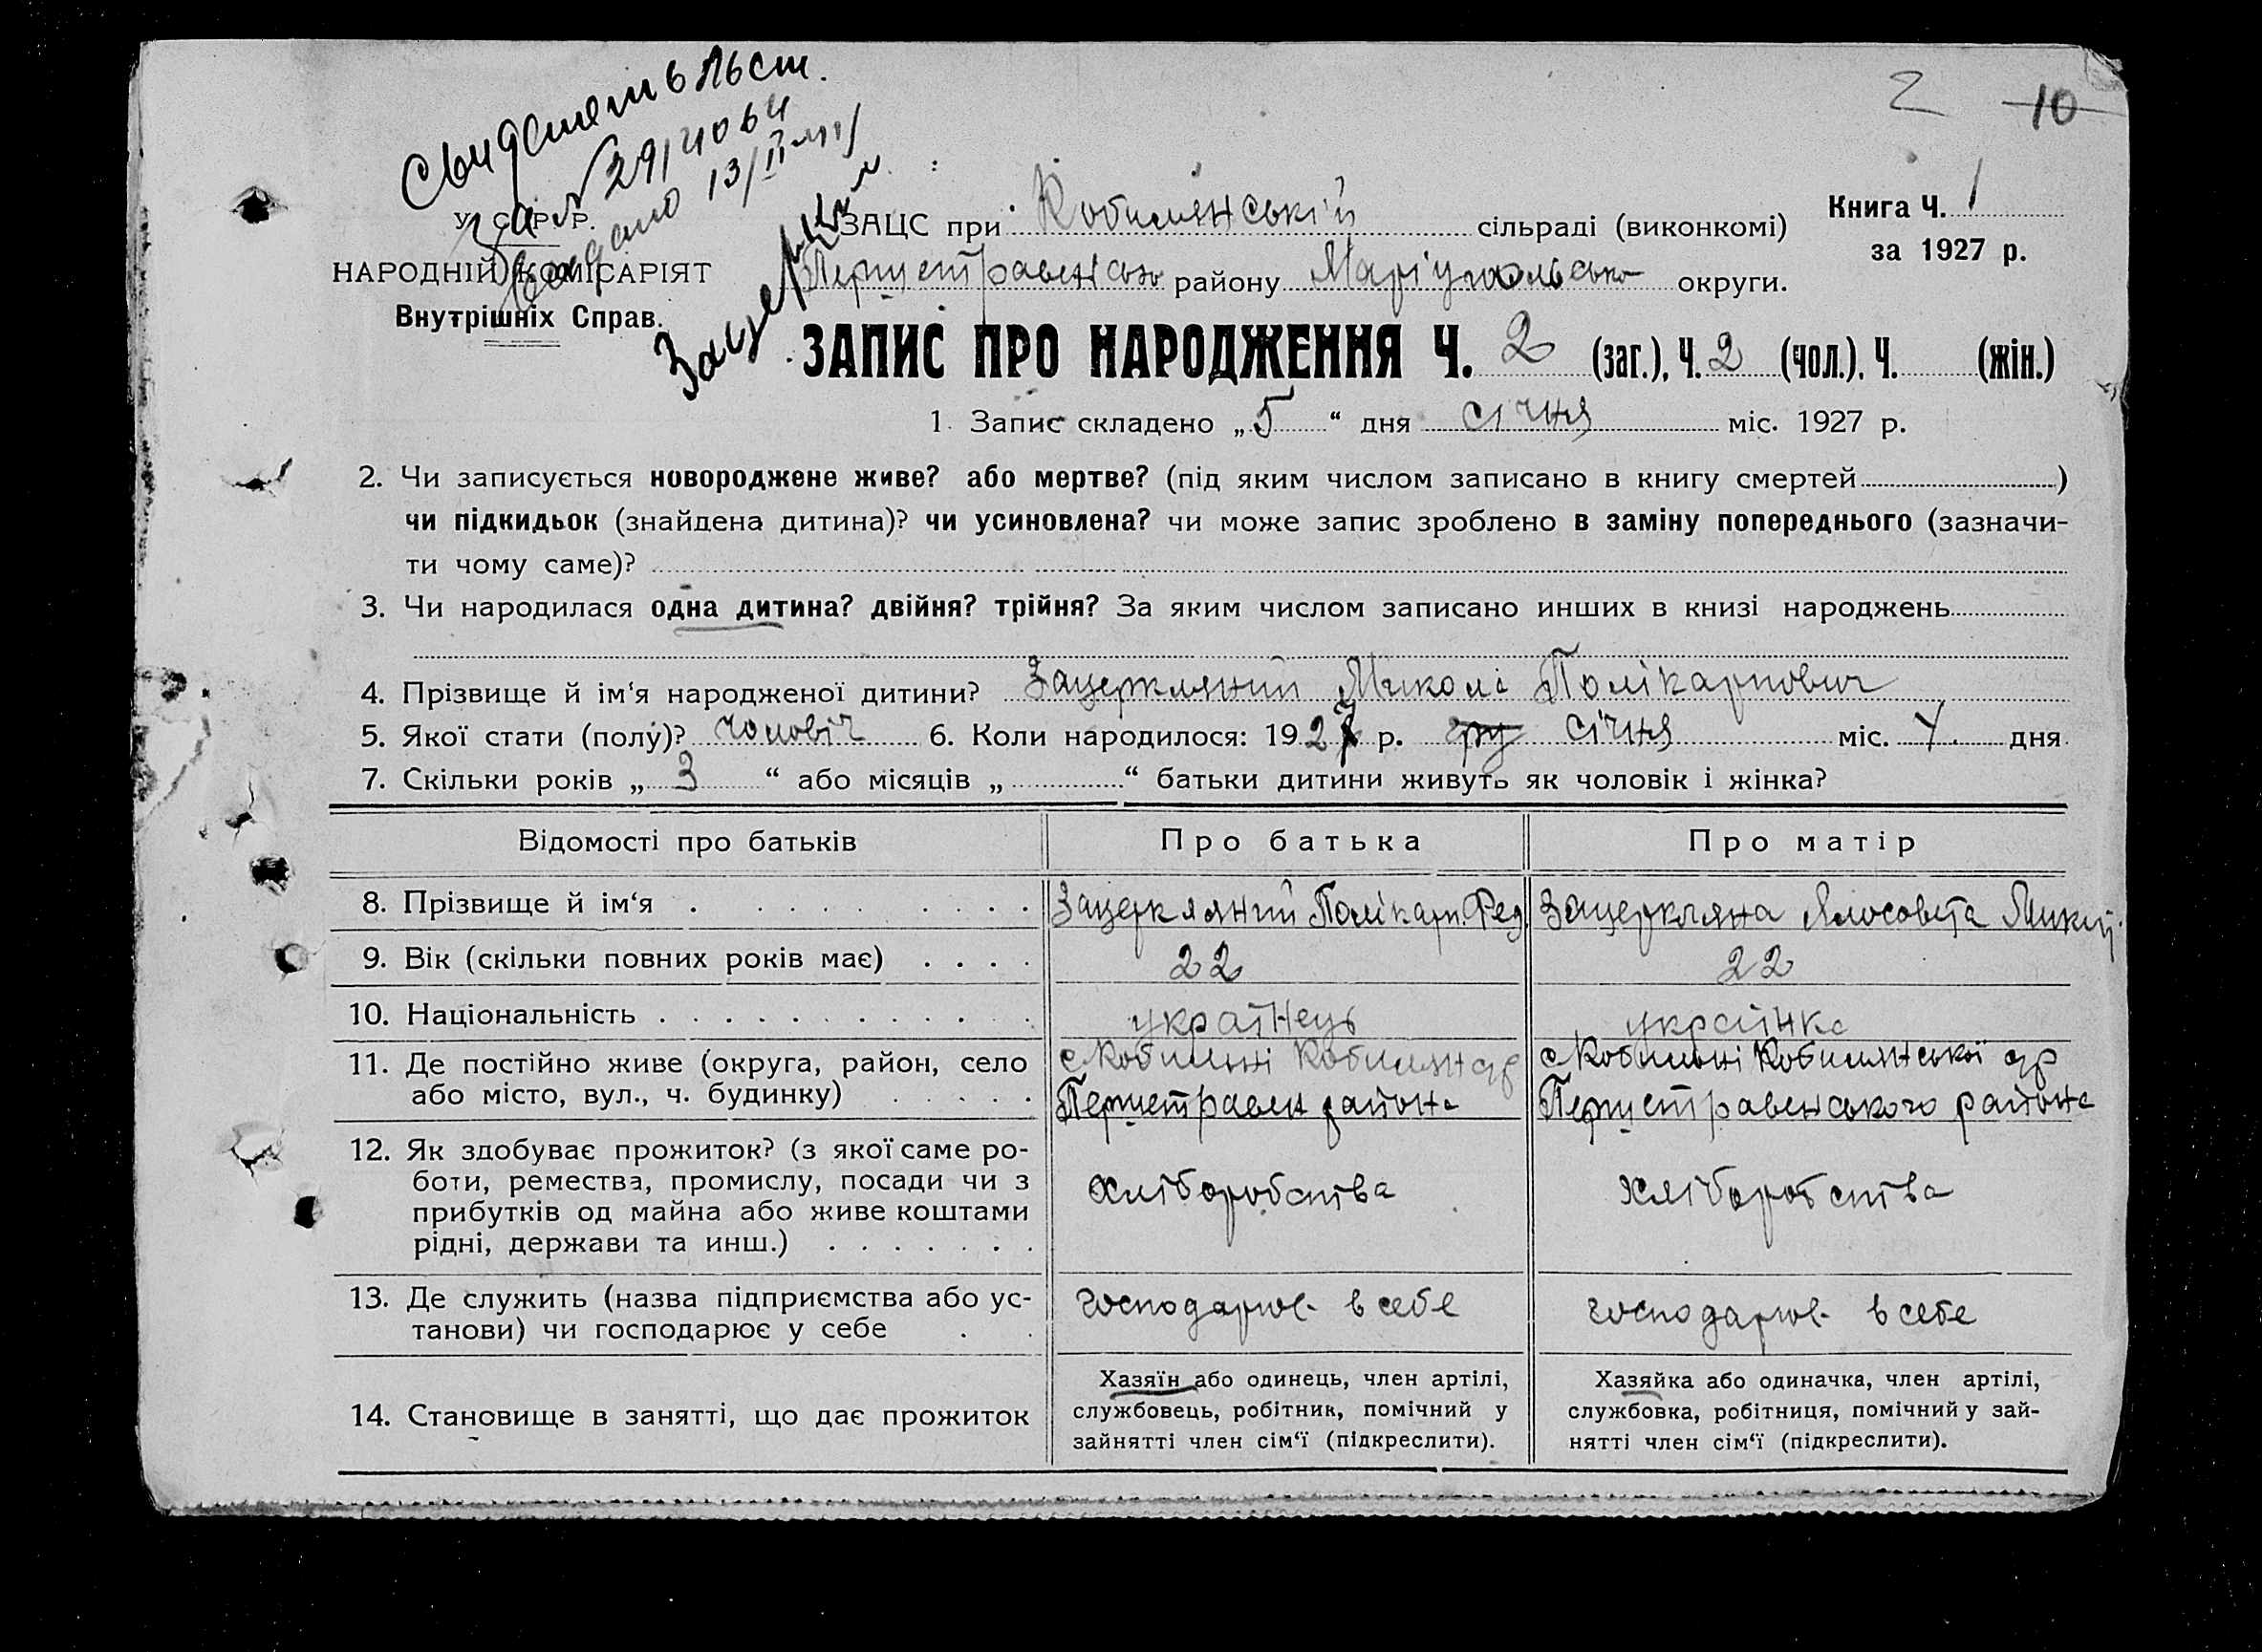 2 10
Свидетельст.
за № 29/4064
Выдано 13/II
Зацерклян
У. С. Р. Р.
НАРОДНІЙ КОМІСАРІЯТ
Внутрішніх Справ.
ЗАЦС при Кобилянській сільраді (виконкомі)
Книга Ч. 1
за 1927 р.
Першетравенсько району Маріупольсько округи.
ЗАПИС ПРО НАРОДЖЕННЯ Ч. 2 (заг.), Ч. 2 (чол.). Ч. (жін.)
1. Запис складено „5“ дня січня міс. 1927 р.
2. Чи записується новороджене живе? або мертве? (під яким числом записано в книгу смертей )
чи підкидьок (знайдена дитина)? чи усиновлена? чи може запис зроблено в заміну попереднього (зазначи-
ти чому саме)?
3. Чи народилася одна дитина? двійня? трійня? За яким числом записано инших в книзі народжень
4. Прізвище й ім‘я народженої дитини? Зацеркляний Микола Полікарпович
5. Якої стати (полу)? чоловіч 6. Коли народилося: 1927 р. гру січня міс. 4 дня
7. Скільки років „ 3 “ або місяців „ “ батьки дитини живуть як чоловік і жінка?
Відомості про батьків Про батька Про матір
8. Прізвище й ім‘я Зацеркляний Полікарп. Фед. Зацеркляна Ялосовета Микит.
9. Вік (скільки повних років має) 22 22
10. Національність українець українка
11. Де постійно живе (округа, район, село с Кобильні Кобилян с/р с Кобильні Кобилянської с/р
або місто, вул., ч. будинку) Першетравен района Першетравенського района
12. Як здобуває прожиток? (з якої саме ро-
боти, ремества, промислу, посади чи з хліборобства хліборобства
прибутків од майна або живе коштами
рідні, держави та инш.)
13. Де служить (назва підприємства або ус- господарює в себе господарює в себе
танови) чи господарює у себе
Хазяїн або одинець, член артілі, Хазяйка або одиначка, член артілі,
14. Становище в занятті, що дає прожиток службовець, робітник, помічний у службовка, робітниця, помічний у зай-
зайнятті член сім‘ї (підкреслити). нятті член сім‘ї (підкреслити).